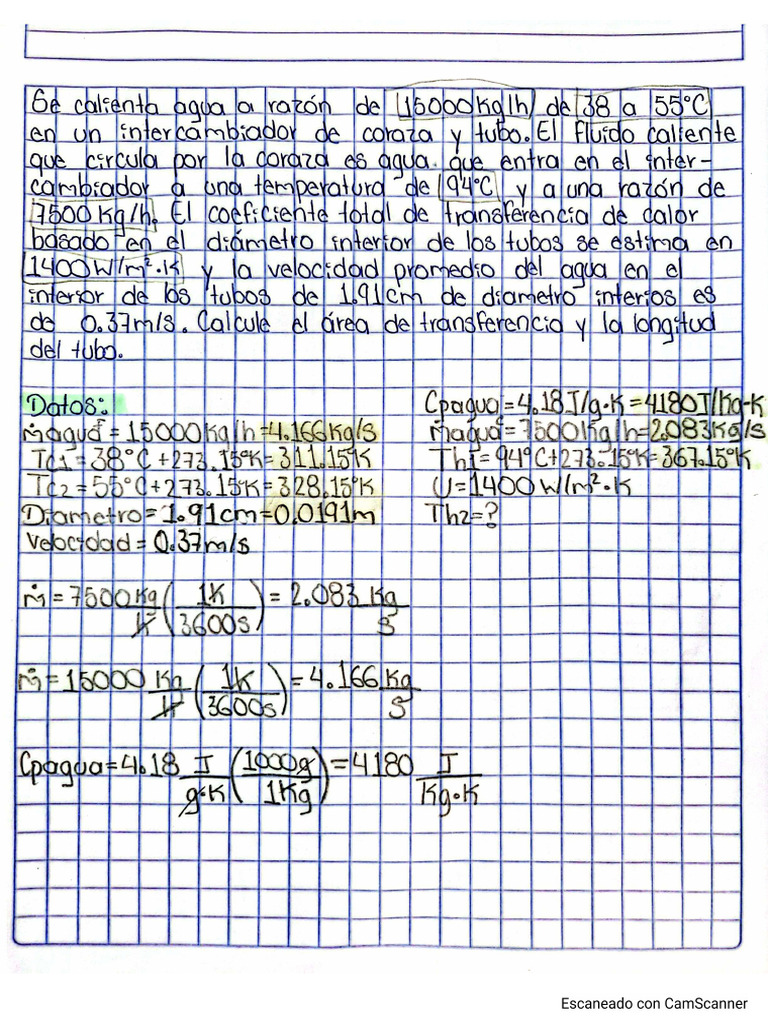 Se calienta agua a razón de 15000Kg/h de 38 a 55°C
en un intercambiador de coraza y tubo. El fluido caliente
que circula por la coraza es agua que entra en el inter-
cambiador a una temperatura de 94°C y a una razón de
7500 Kg/h. El coeficiente total de transferencia de calor
basado en el diámetro interior de los tubos se estima en
1400 W/m²·K y la velocidad promedio del agua en el
interior de los tubos de 1.91cm de diametro interios es
de 0.37m/s. Calcule el área de transferencia y la longitud
del tubo.
Datos:
ṁagua = 15000Kg/h = 4.166Kg/s
Tc1 = 38°C + 273.15°K = 311.15°K
Tc2 = 55°C + 273.15°K = 328.15°K
Diametro = 1.91cm = 0.0191m
Velocidad = 0.37m/s
Cpagua = 4.18 J/g·K = 4180J/Kg·K
ṁagua = 7500Kg/h = 2.083Kg/s
Th1 = 94°C + 273.15°K = 367.15°K
U = 1400 W/m²·K
Th2 = ?
ṁ = 7500 Kg/h (1h/3600s) = 2.083 Kg/s
ṁ = 15000 Kg/h (1h/3600s) = 4.166 Kg/s
Cpagua = 4.18 J/g·K (1000g/1Kg) = 4180 J/Kg·K
Escaneado con CamScanner